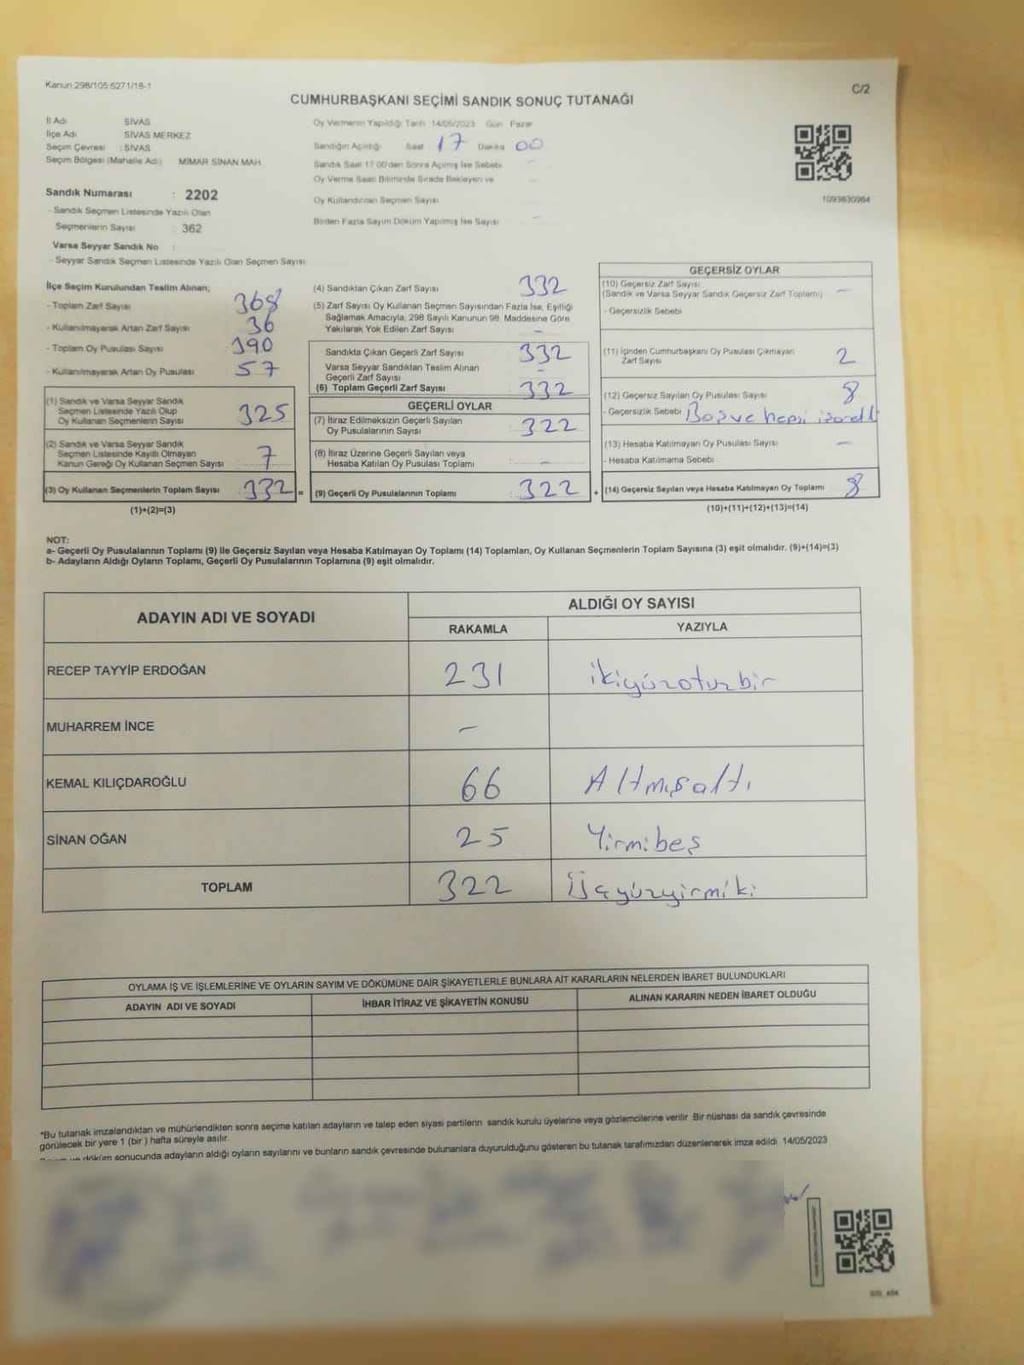 Kanun:298/105:6271/18-1
C/2
CUMHURBAŞKANI SEÇİMİ SANDIK SONUÇ TUTANAĞI
İl Adı : SİVAS
İlçe Adı : SİVAS MERKEZ
Seçim Çevresi : SİVAS
Seçim Bölgesi (Mahalle Adı) : MİMAR SİNAN MAH.
Sandık Numarası : 2202
- Sandık Seçmen Listesinde Yazılı Olan
Seçmenlerin Sayısı : 362
Varsa Seyyar Sandık No :
- Seyyar Sandık Seçmen Listesinde Yazılı Olan Seçmen Sayısı
Oy Vermenin Yapıldığı Tarih 14/05/2023 Gün Pazar
Sandığın Açıldığı Saat 17 Dakika 00
Sandık Saat 17:00'den Sonra Açılmış İse Sebebi -
Oy Verme Saati Bitiminde Sırada Bekleyen ve
Oy Kullandırılan Seçmen Sayısı -
Birden Fazla Sayım Döküm Yapılmış İse Sayısı -
1093630964
İlçe Seçim Kurulundan Teslim Alınan;
- Toplam Zarf Sayısı 368
- Kullanılmayarak Artan Zarf Sayısı 36
- Toplam Oy Pusulası Sayısı 390
- Kullanılmayarak Artan Oy Pusulası 57
(1) Sandık ve Varsa Seyyar Sandık
Seçmen Listesinde Yazılı Olup
Oy Kullanan Seçmenlerin Sayısı 325
(2) Sandık ve Varsa Seyyar Sandık
Seçmen Listesinde Kayıtlı Olmayan
Kanun Gereği Oy Kullanan Seçmen Sayısı 7
(3) Oy Kullanan Seçmenlerin Toplam Sayısı 332 =
(1)+(2)=(3)
(4) Sandıktan Çıkan Zarf Sayısı 332
(5) Zarf Sayısı Oy Kullanan Seçmen Sayısından Fazla İse, Eşitliği
Sağlamak Amacıyla, 298 Sayılı Kanunun 98. Maddesine Göre
Yakılarak Yok Edilen Zarf Sayısı -
Sandıkta Çıkan Geçerli Zarf Sayısı 332
Varsa Seyyar Sandıktan Teslim Alınan
Geçerli Zarf Sayısı -
(6) Toplam Geçerli Zarf Sayısı 332
GEÇERLİ OYLAR
(7) İtiraz Edilmeksizin Geçerli Sayılan
Oy Pusulalarının Sayısı 322
(8) İtiraz Üzerine Geçerli Sayılan veya
Hesaba Katılan Oy Pusulası Toplamı -
(9) Geçerli Oy Pusulalarının Toplamı 322 +
GEÇERSİZ OYLAR
(10) Geçersiz Zarf Sayısı
(Sandık ve Varsa Seyyar Sandık Geçersiz Zarf Toplamı) -
- Geçersizlik Sebebi
(11) İçinden Cumhurbaşkanı Oy Pusulası Çıkmayan
Zarf Sayısı 2
(12) Geçersiz Sayılan Oy Pusulası Sayısı 8
- Geçersizlik Sebebi Boş ve hepsi
(13) Hesaba Katılmayan Oy Pusulası Sayısı -
- Hesaba Katılmama Sebebi
(14) Geçersiz Sayılan veya Hesaba Katılmayan Oy Toplamı 8
(10)+(11)+(12)+(13)=(14)
NOT:
a- Geçerli Oy Pusulalarının Toplamı (9) ile Geçersiz Sayılan veya Hesaba Katılmayan Oy Toplamı (14) Toplamları, Oy Kullanan Seçmenlerin Toplam Sayısına (3) eşit olmalıdır. (9)+(14)=(3)
b- Adayların Aldığı Oyların Toplamı, Geçerli Oy Pusulalarının Toplamına (9) eşit olmalıdır.
ADAYIN ADI VE SOYADI ALDIĞI OY SAYISI
RAKAMLA YAZIYLA
RECEP TAYYİP ERDOĞAN 231 ikiyüzotuzbir
MUHARREM İNCE -
KEMAL KILIÇDAROĞLU 66 Altmışaltı
SİNAN OĞAN 25 Yirmibeş
TOPLAM 322 Üçyüzyirmiki
OYLAMA İŞ VE İŞLEMLERİNE VE OYLARIN SAYIM VE DÖKÜMÜNE DAİR ŞİKAYETLERLE BUNLARA AİT KARARLARIN NELERDEN İBARET BULUNDUKLARI
ADAYIN ADI VE SOYADI İHBAR İTİRAZ VE ŞİKAYETİN KONUSU ALINAN KARARIN NEDEN İBARET OLDUĞU
*Bu tutanak imzalandıktan ve mühürlendikten sonra seçime katılan adayların ve talep eden siyasi partilerin sandık kurulu üyelerine veya gözlemcilerine verilir. Bir nüshası da sandık çevresinde
görülecek bir yere 1 (bir) hafta süreyle asılır.
döküm sonucunda adayların aldığı oyların sayılarını ve bunların sandık çevresinde bulunanlara duyurulduğunu gösteren bu tutanak tarafımızdan düzenlenerek imza edildi. 14/05/2023